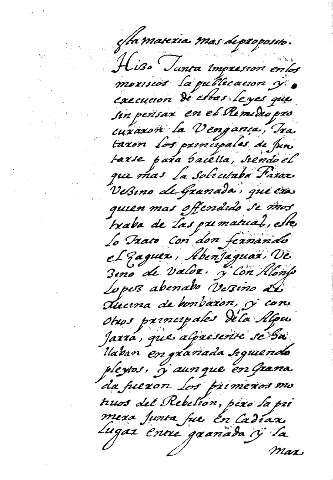 esta materia mas de proposito.
Hizo Junta impresion en los
moriscos la publicacion y
execucion de estas leyes que
sin pensar en el Remedio pro
curaron la Vengança, Tra
taron los principales de Jun
tarse para hacella, siendo el
que mas la solicitaba Farax
Vezino de Granada, que era
quien mas offendido se mos
traba de las prematicas, este
lo Trato con don fernando
el Zaguer, Abenjaguar Ve
zino de Valor, y con Alonso
Lopez abenabo Vezino de
de bonbaron, y con
otros principales de la Alpu
Jarra, que al presente se ha
llaban en granada siguiendo
pleytos, y aunque en Grana
da fueron los primeros mo
tivos del Rebelion, pero la pri
mera Junta fue en Cadiar
Lugar entre granada y la
mar